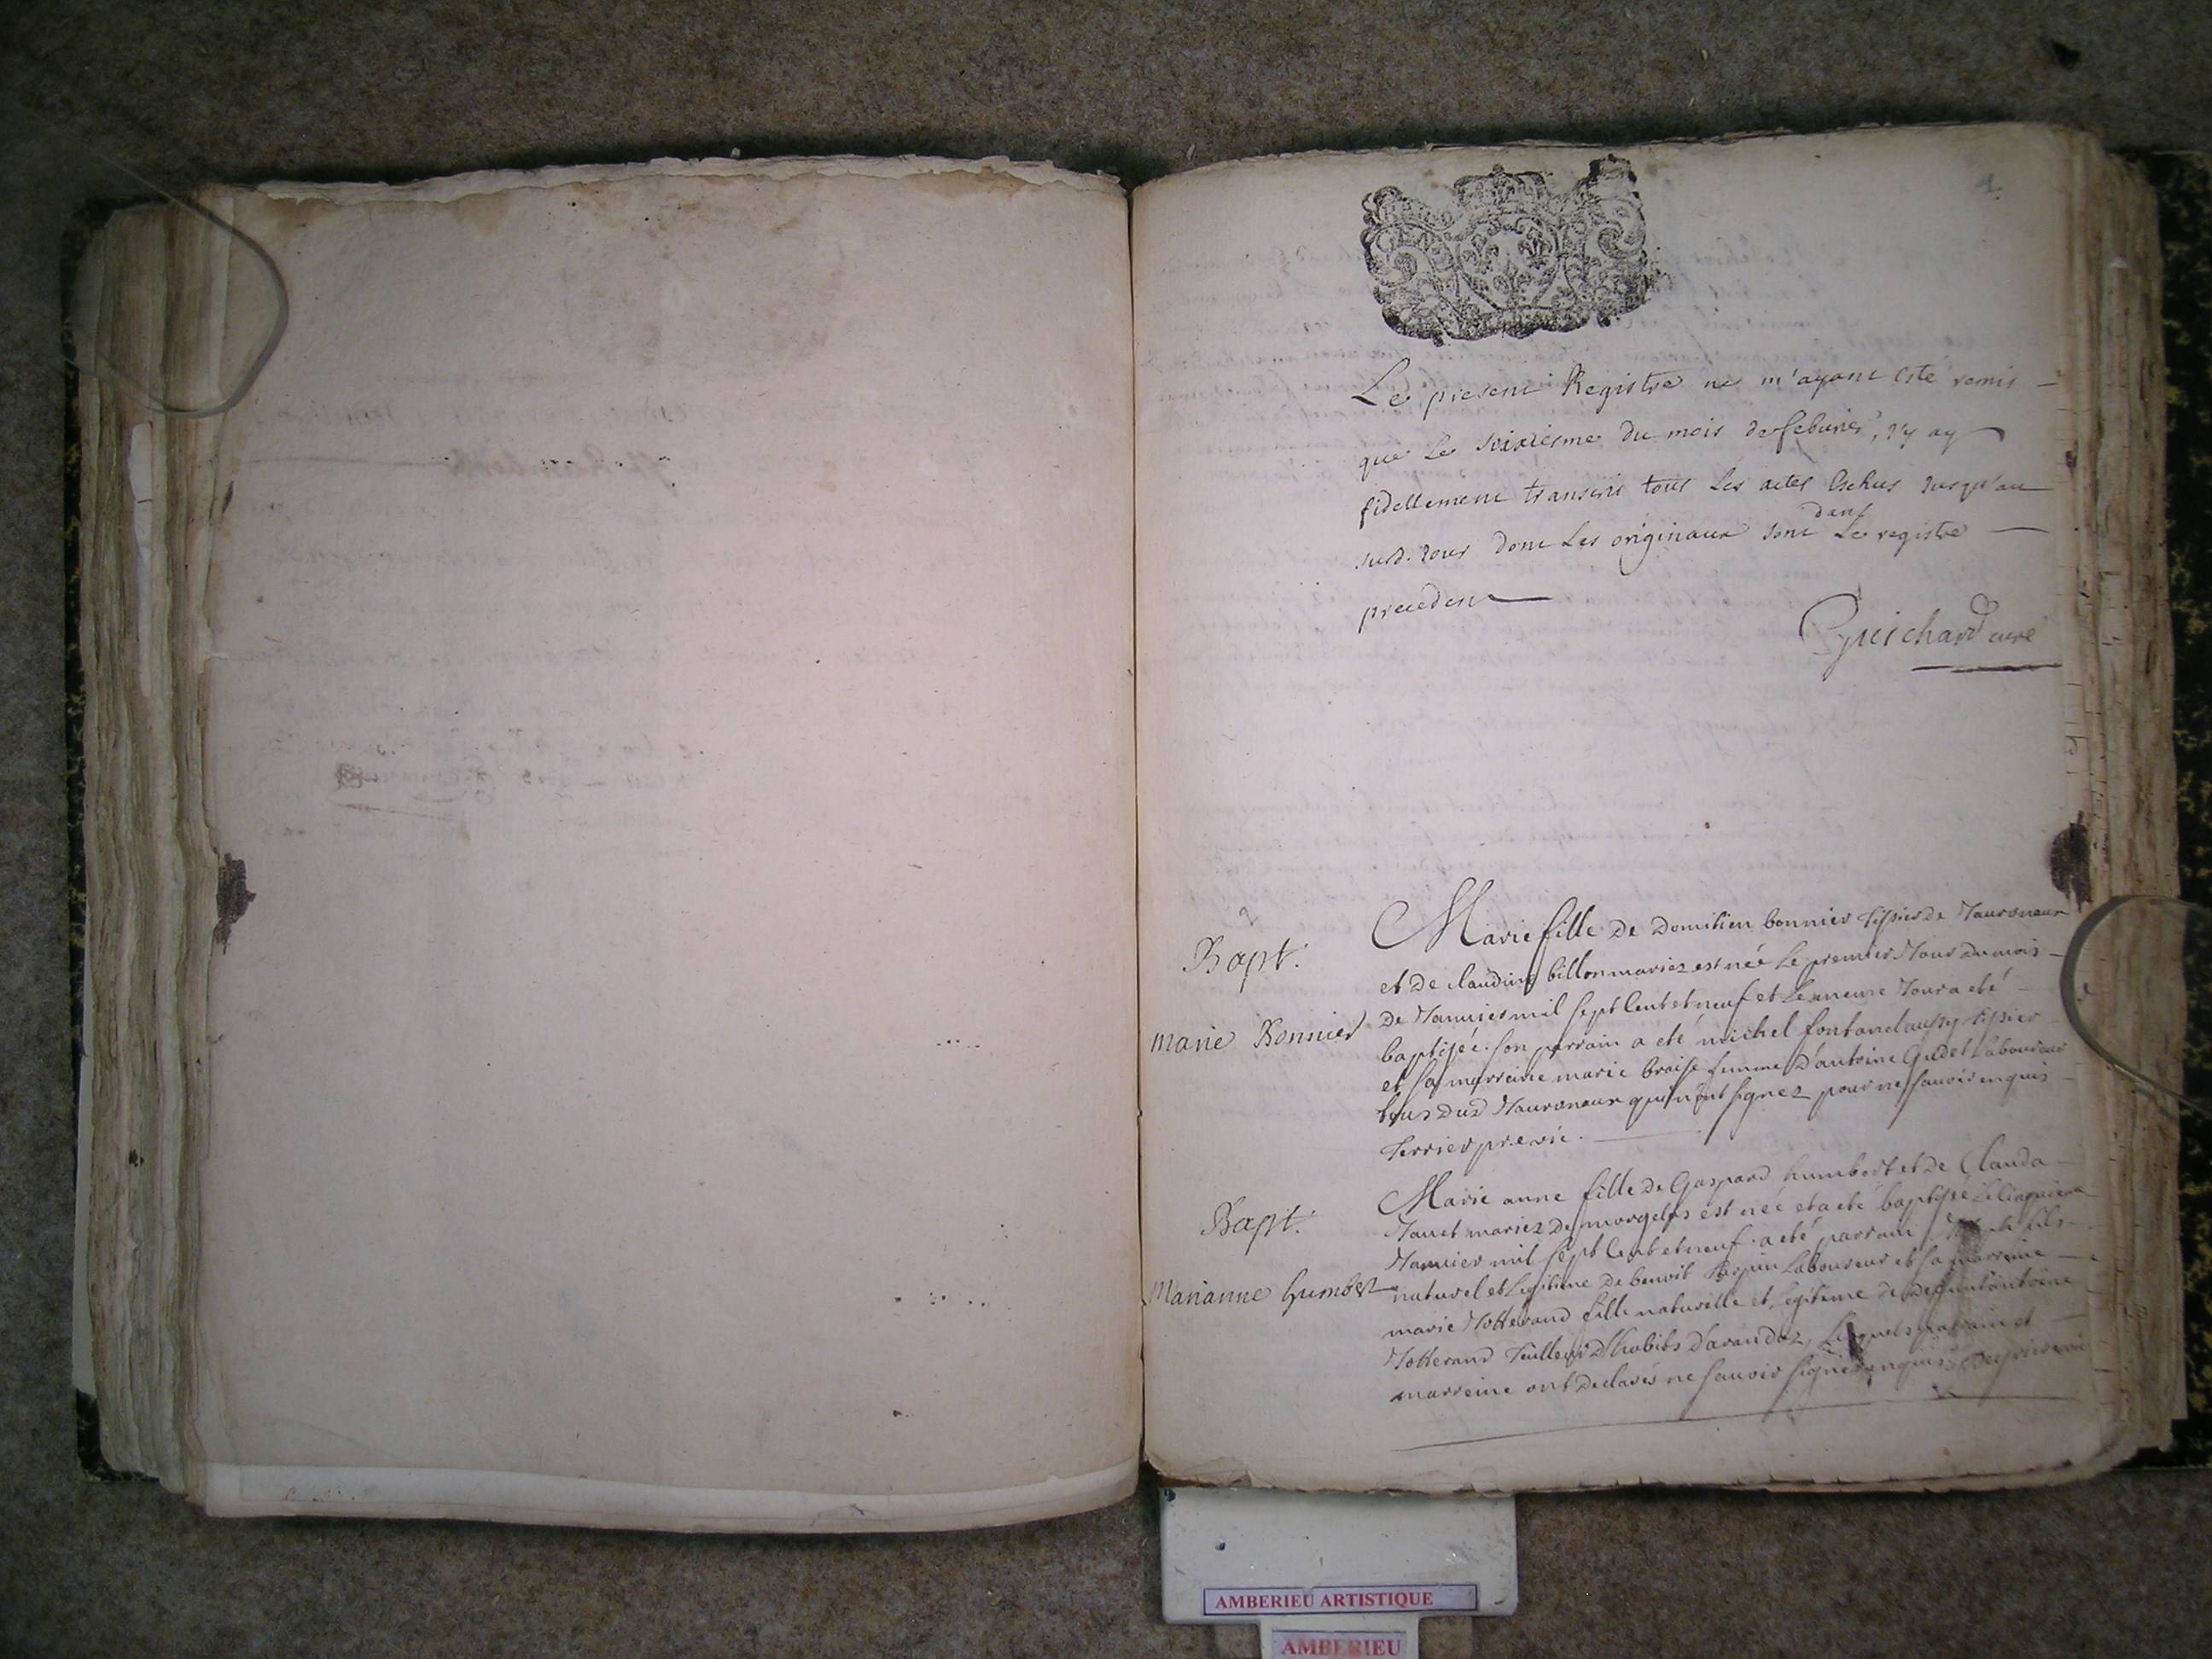 Le present Registre ne m'ayant esté remis
que le seixiesme du mois de febvrier, j'y ay
fidellement transcris tous les actes eschus jusqu'au
susd. jour dont les originaux sont dans le registre
precedent
Guichard curé
Bapt.
marie Bonnier
Marie fille de Domitien bonnier tissier de
et de claudine billon mariez est née le premier Jour du mois
de Janvier mil sept cent et neuf et le meme Jour a eté
baptisée. son parrain a eté michel fontanel aussy tissier
et sa marreine marie braise femme d'antoine Gudet laboureur
tous dud qui n'ont signez pour ne sauoir enquis
Terrier pr. vic.
Bapt.
Marianne humbert
Marie anne fille de Gaspard humbert et de Clauda
Janet mariez de morgelas est née et a eté baptisée le cinquieme
Janvier mil sept cent et neuf. a eté parrain fils
naturel et legitime de benoit laboureur et sa marreine
marie Jotterand fille naturelle et legitime de deffunt antoine
Jotterand d'habits d'arandaz, lesquels parrain et
marreine ont declarés ne sauoir signer enquis
AMBERIEU ARTISTIQUE
AMBERIEU